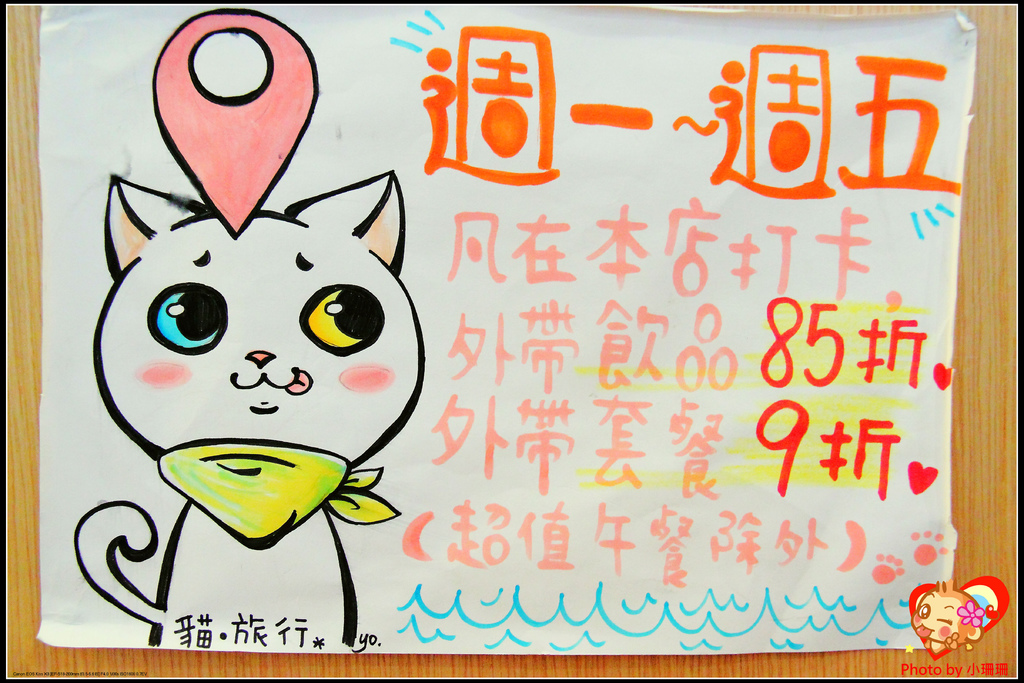 週一~週五
凡在本店打卡,
外帶飲品 85折
外帶套餐 9折
(超值午餐除外)
貓·旅行*
yo.
Photo by 小珊珊